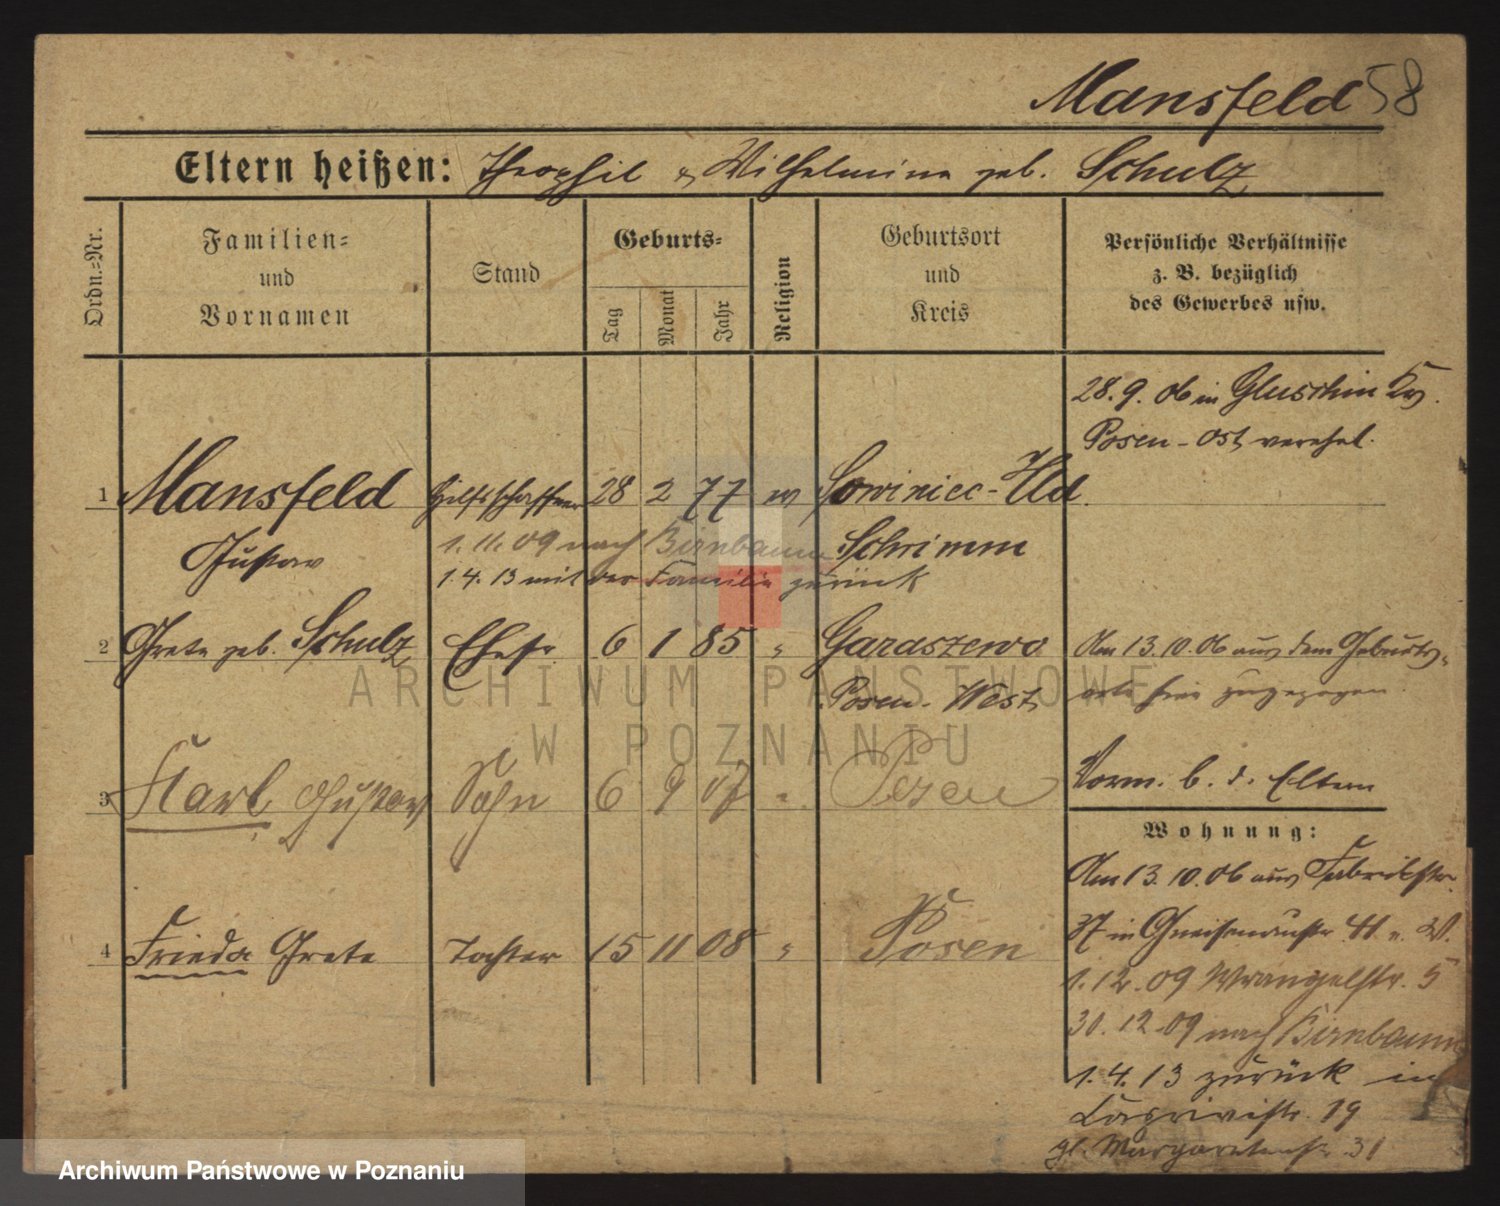 Mansfeld 58
Eltern heißen: Theophil & Wilhelmine geb. Schulz
Ordn.=Nr.
Familien=
und
Vornamen
Stand
Geburts=
Tag
Monat
Jahr
Religion
Geburtsort
und
Kreis
Persönliche Verhältnisse
z. B. bezüglich
des Gewerbes usw.
28. 9. 06 in Gluschin Krs.
Posen-Ost verehel.
1 Mansfeld Hilfsschaffner 28 2 77 ev Sowiniec-Hld.
Gustav
1. 11. 09 nach Birnbaum Schrimm
1. 4. 13 mit der Familie zurück
2 Grete geb. Schulz Ehefr. 6 1 85 " Garaszewo
Posen-West
Am 13. 10. 06 aus dem Geburts=
orte hier zugezogen
3 Karl Gustav Sohn 6 9 07 " Posen
Vorm. b. d. Eltern
Wohnung:
Am 13. 10. 06 aus Fabrikstr.
37 in Gneisenaustr. 11 n. W.
4 Frieda Grete Tochter 15 11 08 " Posen
1. 12. 09 Wrangelstr. 5
30. 12. 09 nach Birnbaum
1. 4. 13 zurück in
19
gl. Margaretenstr. 31
ARCHIWUM PAŃSTWOWE
W POZNANIU
Archiwum Państwowe w Poznaniu